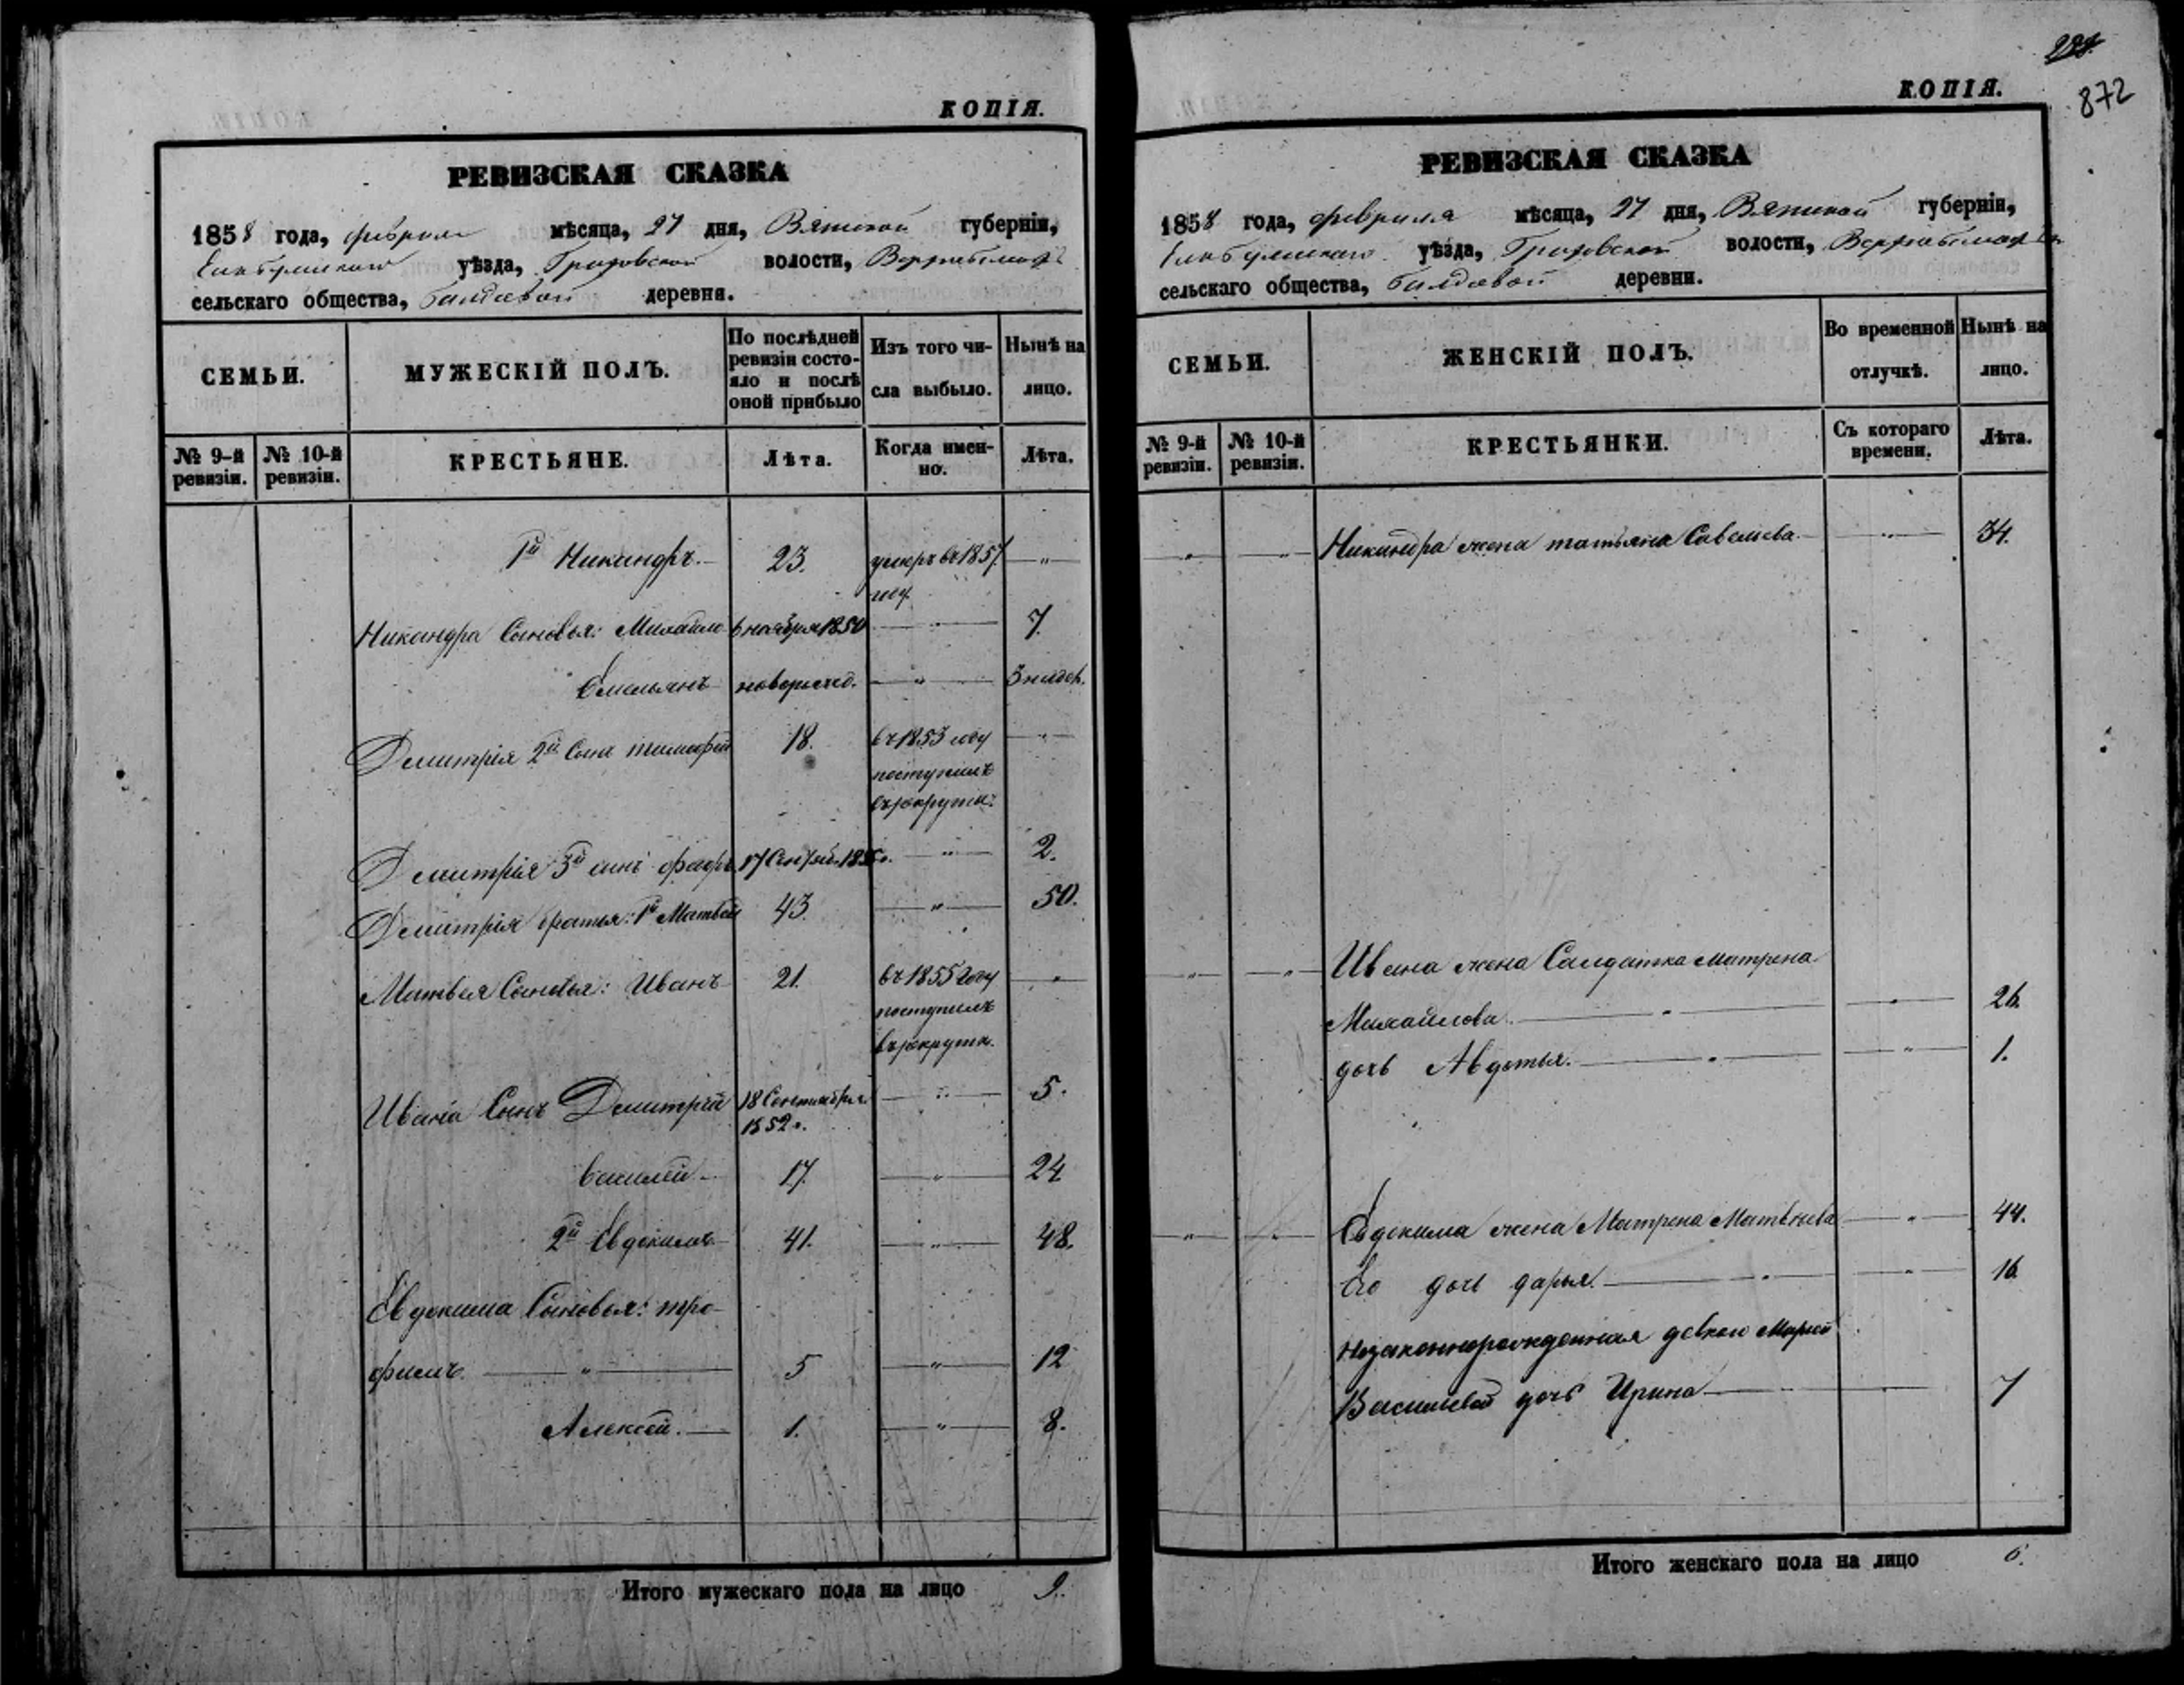 КОПІЯ.
РЕВИЗСКАЯ СКАЗКА
1858 года, февраля мѣсяца, 27 дня, Вятской губерніи,
уѣзда, волости,
сельскаго общества, деревни.
СЕМЬИ.
МУЖЕСКІЙ ПОЛЪ.
По послѣдней
ревизіи состо-
яло и послѣ
оной прибыло
Изъ того чи-
сла выбыло.
Нынѣ на
лицо.
№ 9-й
ревизіи.
№ 10-й
ревизіи.
КРЕСТЬЯНЕ.
Лѣта.
Когда имен-
но.
Лѣта.
1й Никандръ. 23. умеръ въ 1857 „
году.
Никандра Сыновья: Михайло 6 ноября 1850 „ 7.
Емельянъ новорожд. „ 3 недѣл.
Дмитрія 2й Сынъ тимофей 18. въ 1853 году „
поступилъ
въ рекруты.
Дмитрія 3й сынъ 17 „ 2.
Дмитрія братья: 1й Матвей 43. „ 50.
Матвея Сыновья: Иванъ 21. въ 1855 году „
поступилъ
въ рекруты.
Ивана Сынъ Дмитрій 18 Сентября „ 5.
1852 г.
Василій 17. „ 24
2й Евдокимъ 41. „ 48.
Евдокима Сыновья: тро-
фимъ. „ 5 „ 12
Алексей. 1. „ 8.
Итого мужескаго пола на лицо 9.
872
КОПІЯ.
РЕВИЗСКАЯ СКАЗКА
1858 года, февраля мѣсяца, 27 дня, Вятской губерніи,
уѣзда, волости,
сельскаго общества, деревни.
СЕМЬИ.
ЖЕНСКІЙ ПОЛЪ.
Во временной
отлучкѣ.
Нынѣ на
лицо.
№ 9-й
ревизіи.
№ 10-й
ревизіи.
КРЕСТЬЯНКИ.
Съ котораго
времени.
Лѣта.
„ „ Никандра жена татьяна Савельева. „ 34.
„ „ Ивана жена Салдатка Матрена
Михайлова. „ „ 26.
дочь Авдотья. „ „ 1.
„ „ Евдокима жена Матрена Матвѣева „ 44.
Его дочь дарья. „ „ 16
Незаконнорожденная девки Марьи
Васильевой дочь Ирина 7
Итого женскаго пола на лицо 6.